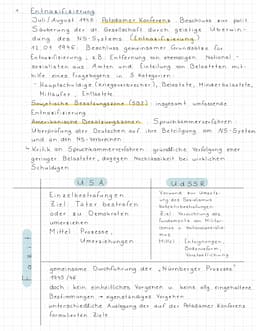 • Entnazifizierung
Juli / August 1945: Potsdamer Konferenz: Beschluss zur polit.
Säuberung der dt. Gesellschaft durch geistige Überwin-
dung des NS-Systems (Entnazifizierung)
12.01.1946: Beschluss gemeinsamer Grundsätze für
Entnazifizierung, z.B. Entfernung von ehemaligen National-
sozialisten aus Ämtern und Einteilung von Belasteten mit-
hilfe eines Fragebogens in 5 Kategorien:
Hauptschuldige (Kriegsverbrecher), Belastete, Minderbelastete,
Mitläufer, Entlastete
Sowjetische Besatzungszone (SBZ): insgesamt umfassende
Entnazifizierung
Amerikanische Besatzungszonen: Spruchkammerverfahren
Überprüfung der Deutschen auf ihre Beteiligung am NS-System
und an den NS-Verbrechen
↳ Kritik an Spruchkammerverfahren: gründliche Verfolgung eher
geringer Belasteter, dagegen Nachlässigkeit bei wirklichen
Schuldigen
USA
Einzelbestrafungen
Ziel: Täter bestrafen
oder zu Demokraten
umerziehen
Mittel: Prozesse,
Umerziehungen
UdSSR
Vorwand zur Umsetz-
ung des Sozialismus
Kollektivbestrafungen
Ziel: Vernichtung des
Fundaments von Militar-
ismus u. Nationalsozialis-
mus
Mittel: Enteignungen,
Bodenreform,
Verstaatlichung
gemeinsame Durchführung der „Nürnberger Prozesse"
1945/46
doch: kein einheitliches Vorgehen u. keine allg. eingehaltene
Bestimmungen → eigenständiges Vorgehen
unterschiedliche Auslegung der auf der Potsdamer Konferenz
formulierten Ziele